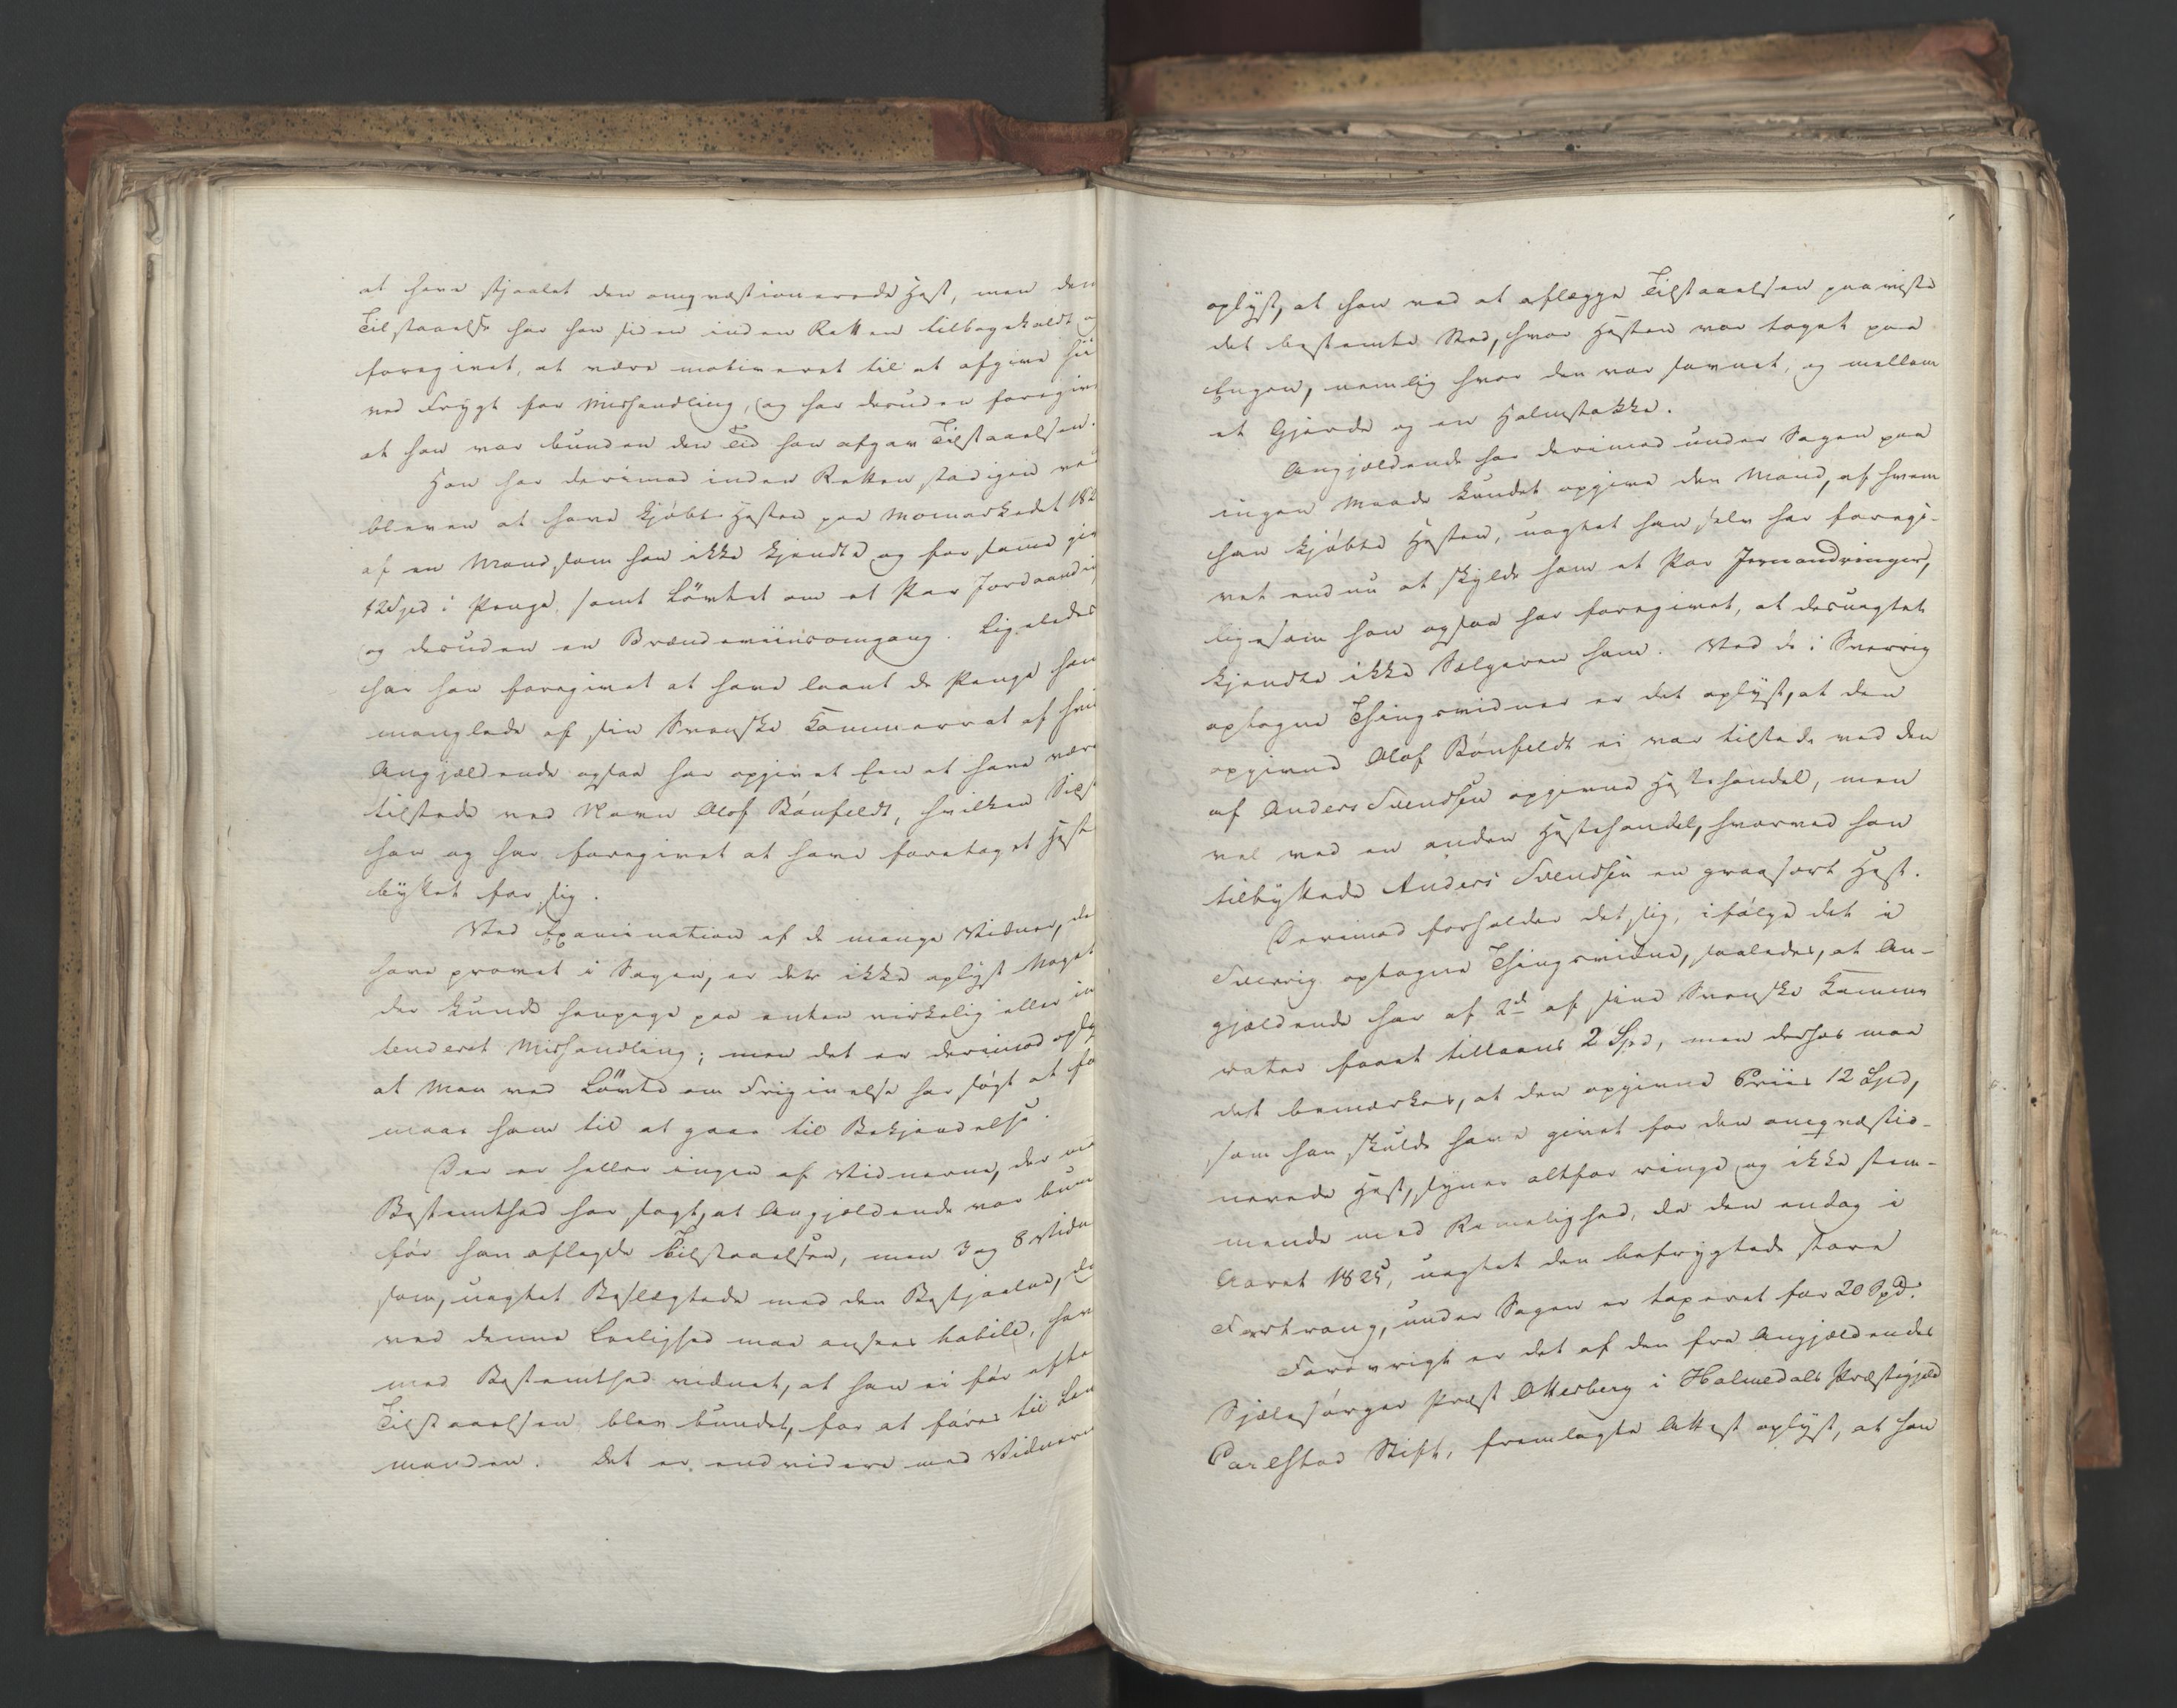 at have stjaalet den omqvæstionerede Hest, men den
Tilstaaelse har han siden inden Retten tilbagekaldt og
foregivet, at være motiveret til at afgive
ved Frygt for Mishandling, og har desuden foregiv
at han var bunden den Tid han afgav Tilstaaelsen.
Han har derimod inden Retten stadigen ved
bleven at have kjøbt Hesten paa Momarkedet 182
af en Mand som han ikke kjendte og for samme giv
12 Spd i Penge, samt Løvtet om et Par
og desuden en Brændeviinsomgang. Ligeledes
har han foregivet at have laant de Penge han
manglede af sin Svenske Kammerrat af hvi
Angjældende ogsaa har opgivet Een at have være
tilstede ved Navn Olof Bönfeldt, hvilken
han og har foregivet at have foretaget Heste
byttet for sig.
Ved Examination af de mange Vidner, de
have provet i Sagen, er det ikke oplyst Noget
der kunde henpege paa enten virkelig eller in
tenderet Mishandling; men det er derimod oply
at Man ved Løvte om Frigivelse har søgt at fo
maae ham til at gaae til Bekjendelse.
Der er heller ingen af Vidnerne, der med
Bestemthed har sagt, at Angjældende var bun
før han aflagde Tilstaaelsen, men 3 og 8 Vidn
som, uagtet Beslægtede med den Bestjaalne, de
ved denne Leelighed maa ansees habile, har
med Bestemthed vidnet, at han ei før efter
Tilstaaelsen blev bundet, for at føres til Len
manden. Det er endvidere med Vidnern
oplyst, at han ved at aflægge Tilstaaelsen paaviste
det bestemte Sted, hvor Hesten var taget paa
Engen, nemlig hvor den var savnet, og mellem
et Gjerde og en Halmstakke.
Angjældende har derimod under Sagen paa
ingen Maade kundet opgive den Mand, af hvem
han kjøbte Hesten, uagtet han selv har foregi-
vet endnu at skylde ham et Par Jernandringer,
ligesom han ogsaa har foregivet, at desuagtet
kjendte ikke Sælgeren ham. Ved de i Sverrig
optagne Thingsvidner er det oplyst, at den
opgivne Olof Bönfeldt ei var tilstede ved den
af Anders Svendsen opgivne Hestehandel, men
vel ved en anden Hestehandel, hvorved han
tilbyttede Anders Svendsen en graasort Hest.
Derimod forholder det sig, ifølge det i
Sverrig optagne Thingsvidne, saaledes, at An-
gjældende har af 2de af sine Svenske Kamme
rater faaet tillaans 2 Spd, men derhos maa
det bemærkes, at den opgivne Priis 12 Spd,
som han skulde have givet for den omqvæstio-
nerede Hest, synes altfor ringe og ikke stem-
mende med Rimelighed, da den endog i
Aaret 1825, uagtet den befrygtede store
Fortrang, under Sagen er taxeret for 20 Spd.
Forøvrigt er det af den fra Angjældendes
Sjælesørger Præst Otterberg i Holmedals Præstegjeld
Carlstad Stift, fremlagte Attest oplyst, at han